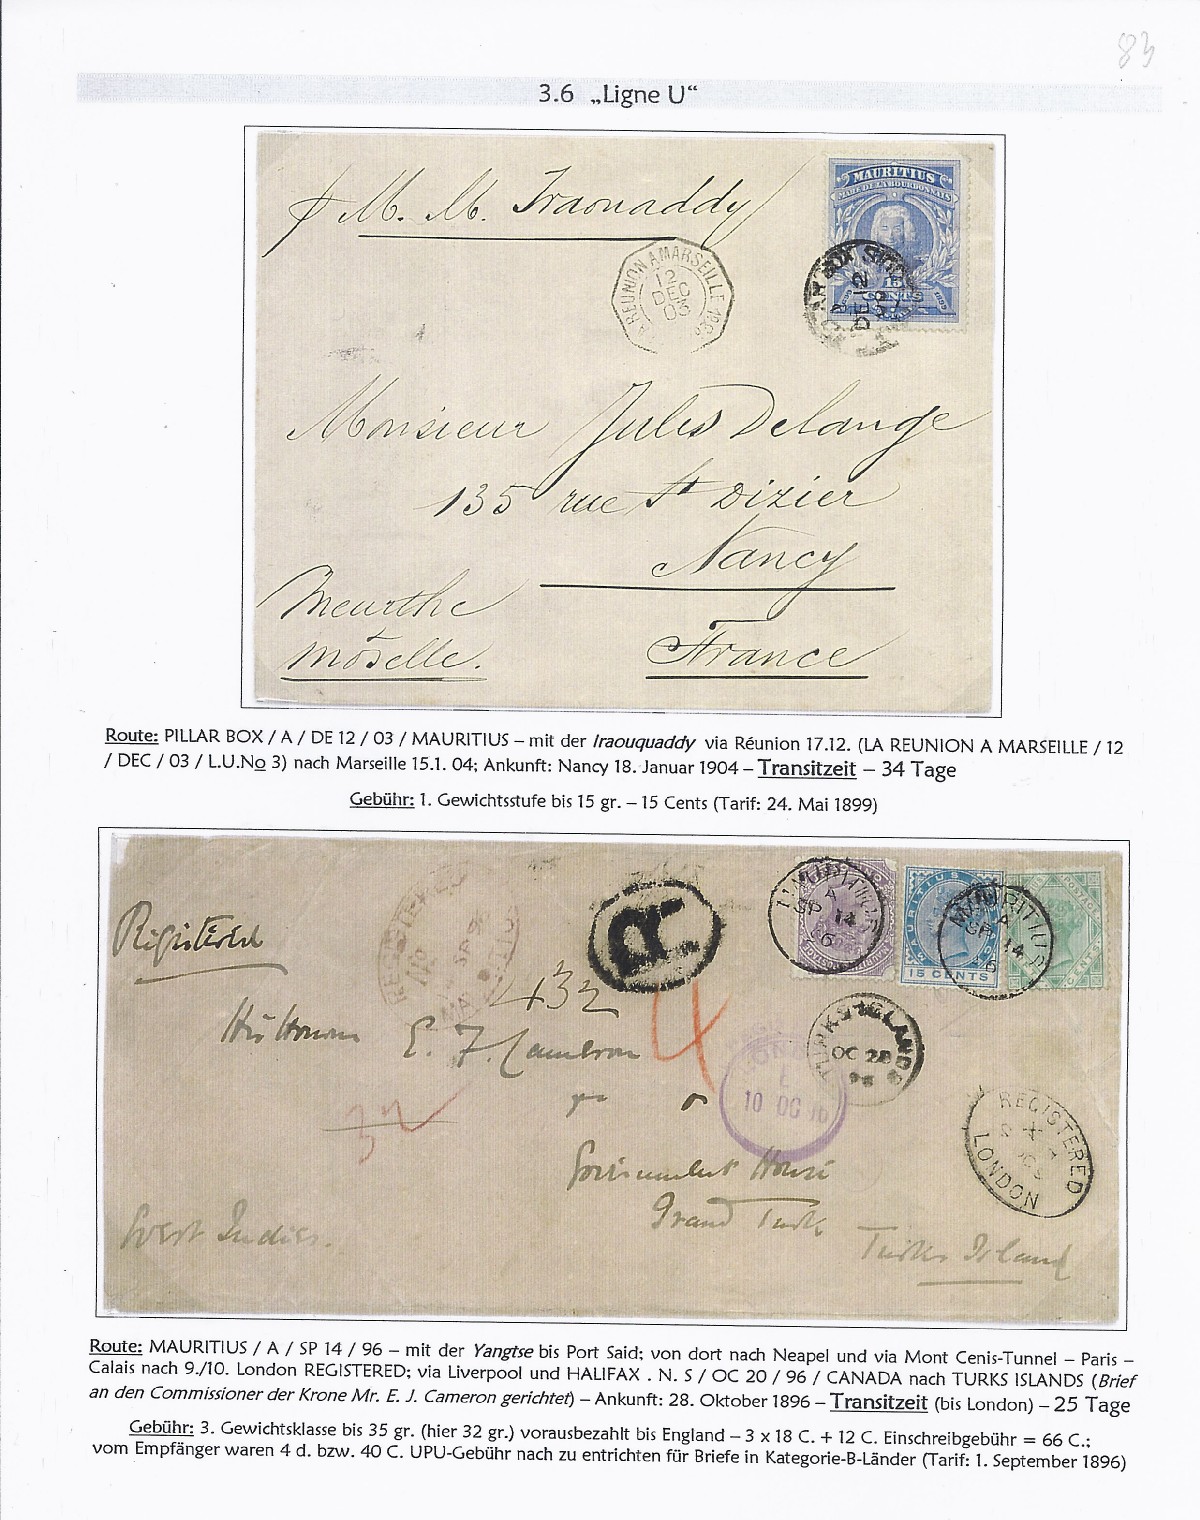 83
3.6 „Ligne U“
p M. M. Iraouaddy
MAURITIUS
MAHE DE LABOURDONNAIS
15
CENTS
LA REUNION A MARSEILLE
12
DEC
03
DE 12
Monsieur Jules Delange
135 rue St Dizier
Nancy
Meurthe
Moselle.
France
Route: PILLAR BOX / A / DE 12 / 03 / MAURITIUS – mit der Iraouquaddy via Réunion 17.12. (LA REUNION A MARSEILLE / 12
/ DEC / 03 / L.U.No 3) nach Marseille 15.1. 04; Ankunft: Nancy 18. Januar 1904 – Transitzeit – 34 Tage
Gebühr: 1. Gewichtsstufe bis 15 gr. – 15 Cents (Tarif: 24. Mai 1899)
Registered
REGISTERED
R
MAURITIUS
A
SP 14
96
MAURITIUS
15 CENTS
MAURITIUS
A
SP 14
96
432
4
His Honour E. J. Cameron
TURKS-ISLANDS
OC 28
96
LONDON
10 OC 96
32
REGISTERED
LONDON
Government House
Grand Turk
West Indies.
Turks Island
Route: MAURITIUS / A / SP 14 / 96 – mit der Yangtse bis Port Said; von dort nach Neapel und via Mont Cenis-Tunnel – Paris –
Calais nach 9./10. London REGISTERED; via Liverpool und HALIFAX . N. S / OC 20 / 96 / CANADA nach TURKS ISLANDS (Brief
an den Commissioner der Krone Mr. E. J. Cameron gerichtet) – Ankunft: 28. Oktober 1896 – Transitzeit (bis London) – 25 Tage
Gebühr: 3. Gewichtsklasse bis 35 gr. (hier 32 gr.) vorausbezahlt bis England – 3 x 18 C. + 12 C. Einschreibgebühr = 66 C.;
vom Empfänger waren 4 d. bzw. 40 C. UPU-Gebühr nach zu entrichten für Briefe in Kategorie-B-Länder (Tarif: 1. September 1896)